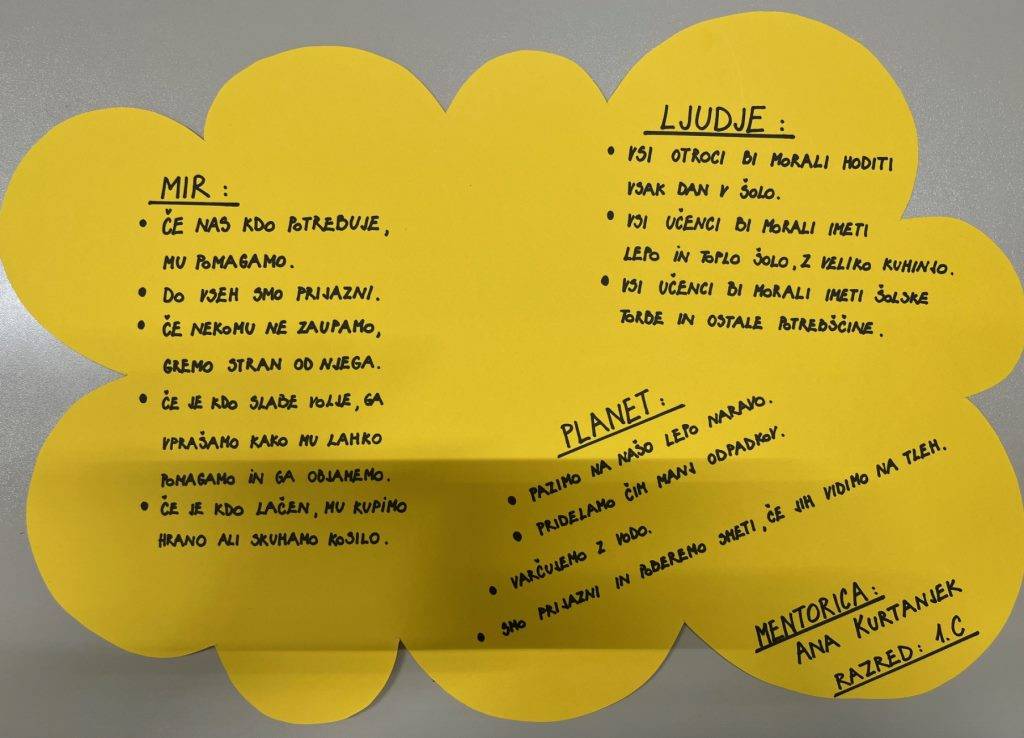 MIR:
• ČE NAS KDO POTREBUJE,
MU POMAGAMO.
• DO VSEH SMO PRIJAZNI.
• ČE NEKOMU NE ZAUPAMO,
GREMO STRAN OD NJEGA.
• ČE JE KDO SLABE VOLJE, GA
VPRAŠAMO KAKO MU LAHKO
POMAGAMO IN GA OBJAMEMO.
• ČE JE KDO LAČEN, MU KUPIMO
HRANO ALI SKUHAMO KOSILO.
LJUDJE:
• VSI OTROCI BI MORALI HODITI
VSAK DAN V ŠOLO.
• VSI UČENCI BI MORALI IMETI
LEPO IN TOPLO ŠOLO, Z VELIKO KUHINJO.
• VSI UČENCI BI MORALI IMETI ŠOLSKE
TORBE IN OSTALE POTREBŠČINE.
PLANET:
• PAZIMO NA NAŠO LEPO NARAVO.
• PRIDELAMO ČIM MANJ ODPADKOV.
• VARČUJEMO Z VODO.
• SMO PRIJAZNI IN POBEREMO SMETI, ČE JIH VIDIMO NA TLEH.
MENTORICA:
ANA KURTANJEK
RAZRED: 1.C